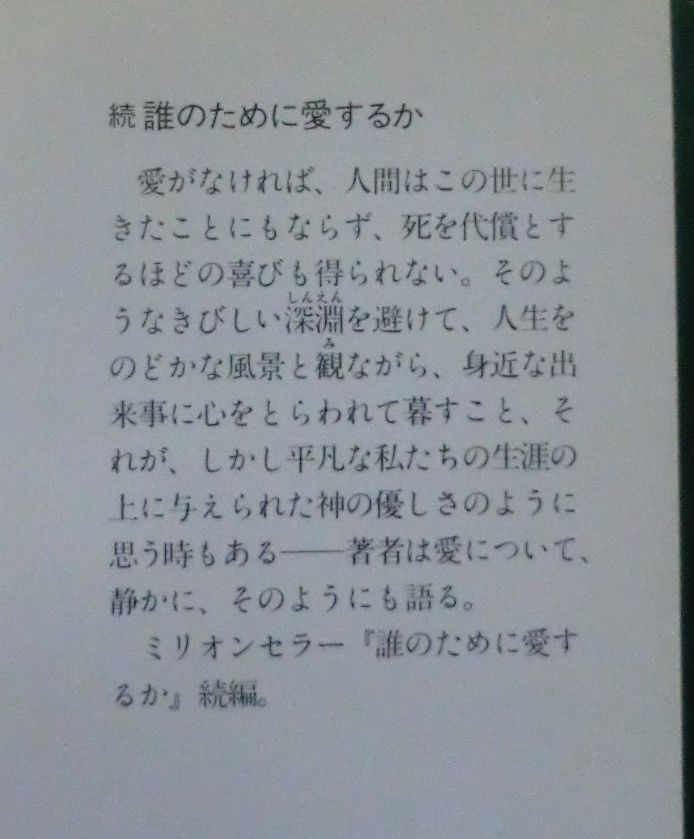 続 誰のために愛するか
愛がなければ、人間はこの世に生
きたことにもならず、死を代償とす
るほどの喜びも得られない。そのよ
しんえん
うなきびしい深淵を避けて、人生を
み
のどかな風景と観ながら、身近な出
来事に心をとらわれて暮すこと、そ
れが、しかし平凡な私たちの生涯の
上に与えられた神の優しさのように
思う時もある――著者は愛について、
静かに、そのようにも語る。
ミリオンセラー『誰のために愛す
るか』続編。